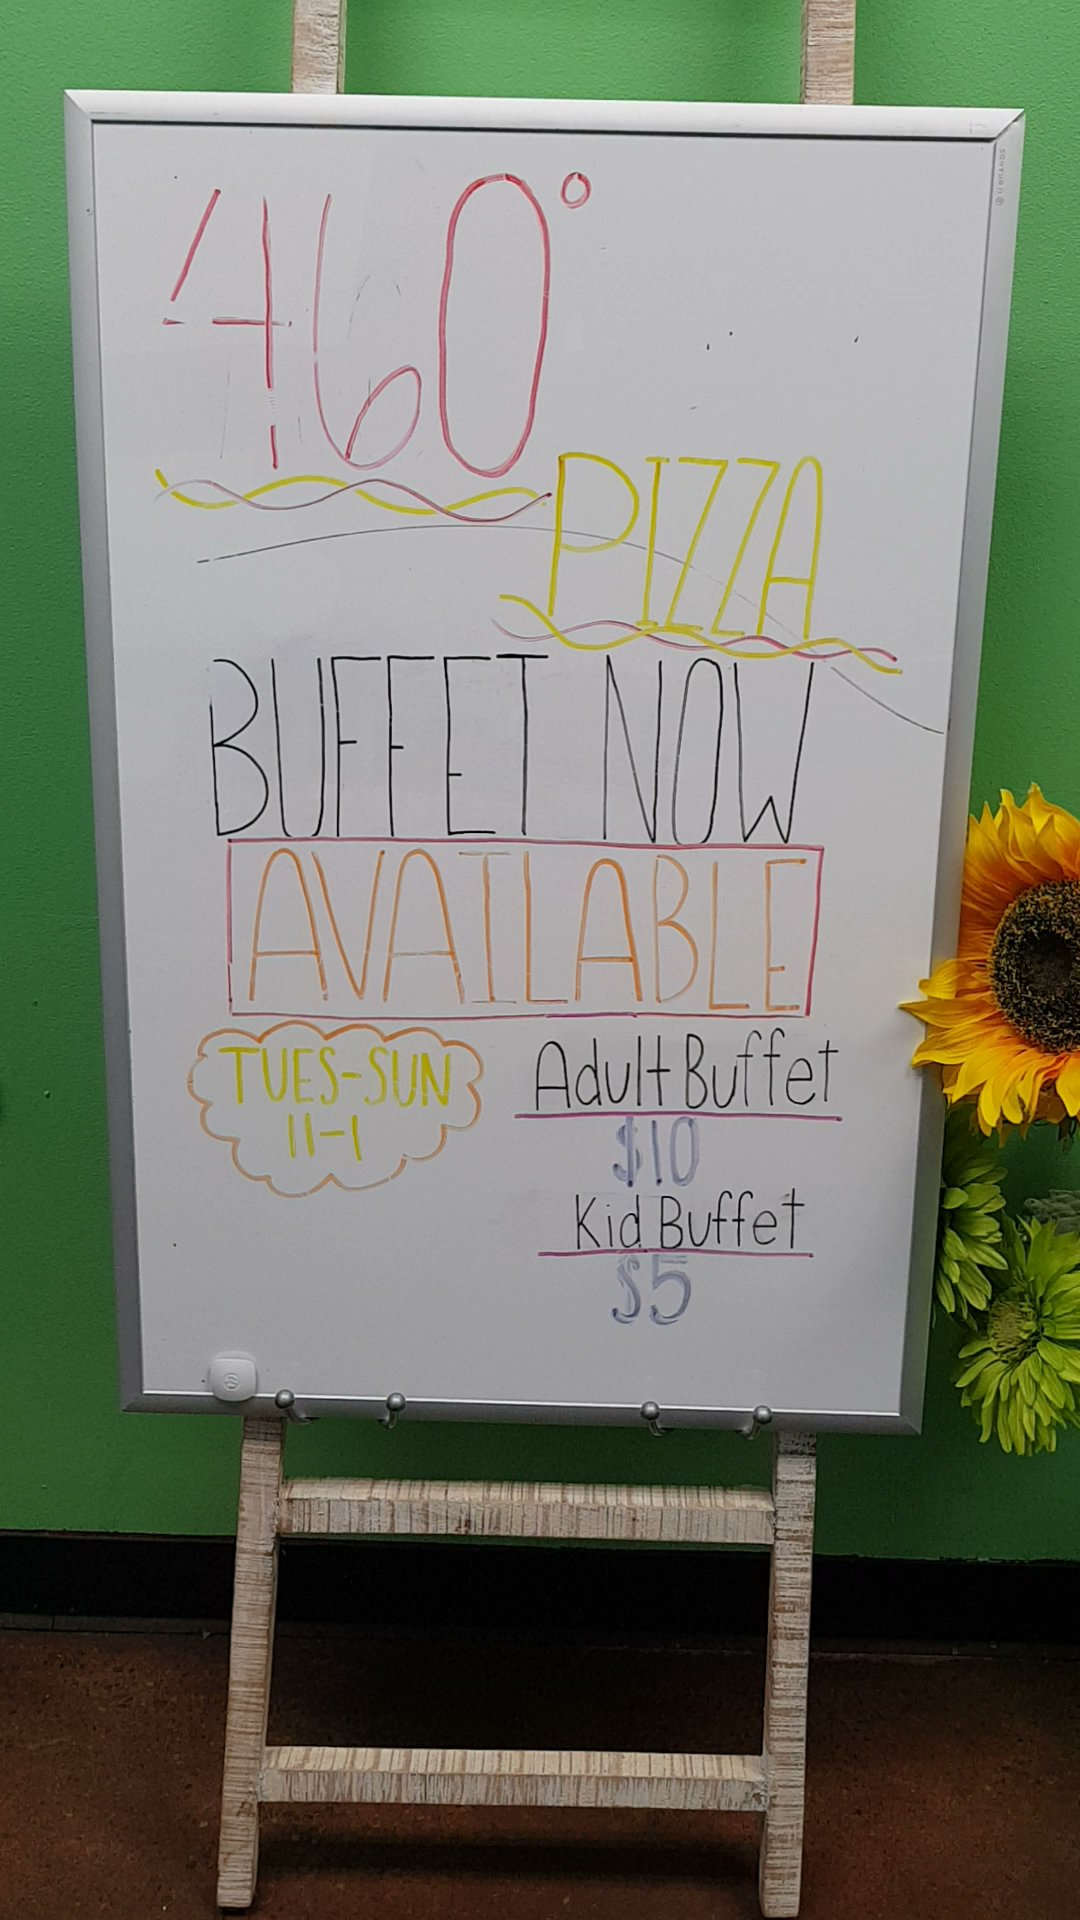 460°
PIZZA
BUFFET NOW
AVAILABLE
TUES-SUN
11-1
Adult Buffet
$10
Kid Buffet
$5
U BRANDS